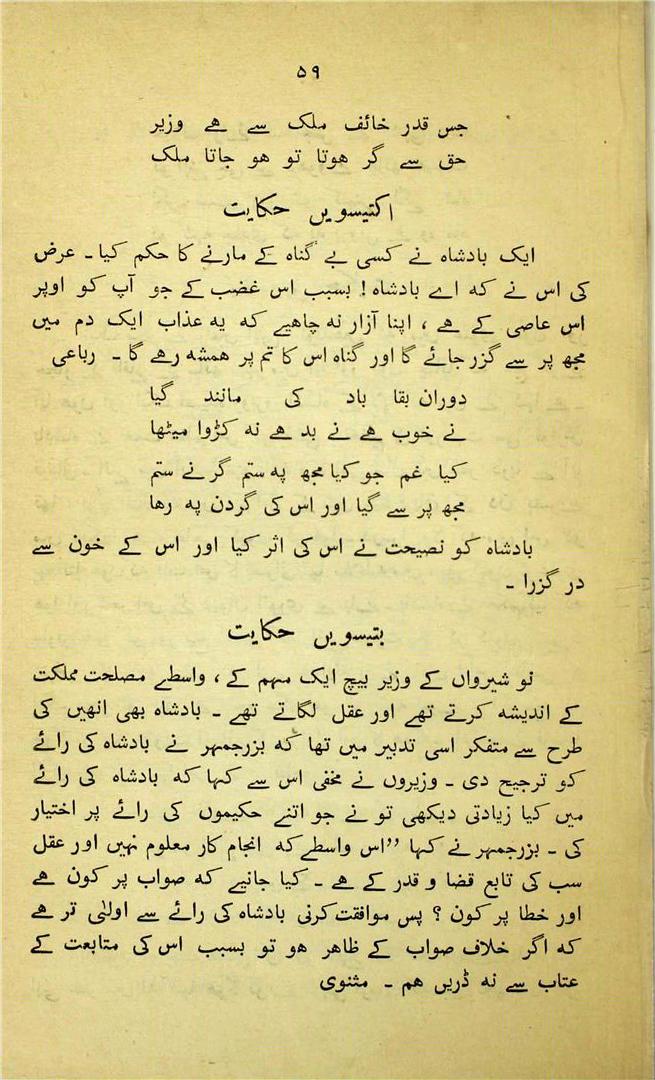 ۵۹
جس قدر خائف ملک سے ہے وزیر
حق سے گر ہوتا تو ہو جاتا ملک
اکتیسویں حکایت
ایک بادشاہ نے کسی بے گناہ کے مارنے کا حکم کیا۔ عرض
کی اس نے کہ اے بادشاہ! بسبب اس غضب کے جو آپ کو اوپر
اس عاصی کے ہے، اپنا آزار نہ چاہیے کہ یہ عذاب ایک دم میں
مجھ پر سے گزر جائے گا اور گناہ اس کا تم پر ہمشہ رہے گا۔ رباعی
دوران بقا باد کی مانند گیا
نے خوب ہے نے بد ہے نہ کڑوا میٹھا
کیا غم جو کیا مجھ پہ ستم گر نے ستم
مجھ پر سے گیا اور اس کی گردن پہ رہا
بادشاہ کو نصیحت نے اس کی اثر کیا اور اس کے خون سے
در گزرا۔
بتیسویں حکایت
نو شیرواں کے وزیر بیچ ایک مہم کے، واسطے مصلحت مملکت
کے اندیشہ کرتے تھے اور عقل لگاتے تھے۔ بادشاہ بھی انھیں کی
طرح سے متفکر اسی تدبیر میں تھا کہ بزرجمہر نے بادشاہ کی رائے
کو ترجیح دی۔ وزیروں نے مخفی اس سے کہا کہ بادشاہ کی رائے
میں کیا زیادتی دیکھی تو نے جو اتنے حکیموں کی رائے پر اختیار
کی۔ بزرجمہر نے کہا ”اس واسطے کہ انجام کار معلوم نہیں اور عقل
سب کی تابع قضا و قدر کے ہے۔ کیا جانیے کہ صواب پر کون ہے
اور خطا پر کون؟ پس موافقت کرنی بادشاہ کی رائے سے اولیٰ تر ہے
کہ اگر خلاف صواب کے ظاہر ہو تو بسبب اس کی متابعت کے
عتاب سے نہ ڈریں ہم۔ مثنوی